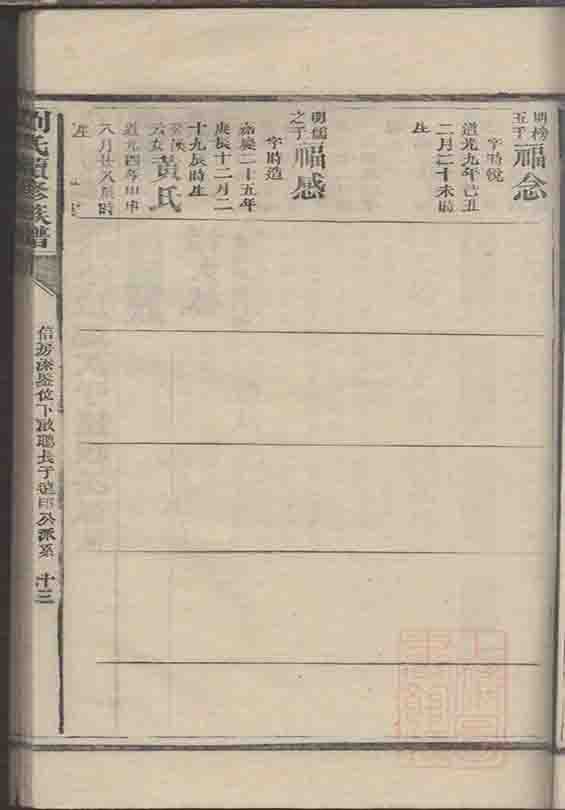 明榜
五子
福念
字時銳
道光九年己丑
二月二十未時
生
明
之子
福感
字時造
嘉慶二十五年
庚辰十二月二
十九辰時生
黃氏
道光四年甲申
八月廿八辰時
生
劉氏續修族譜
信房添鑒位下啟聰長子公派系
十三